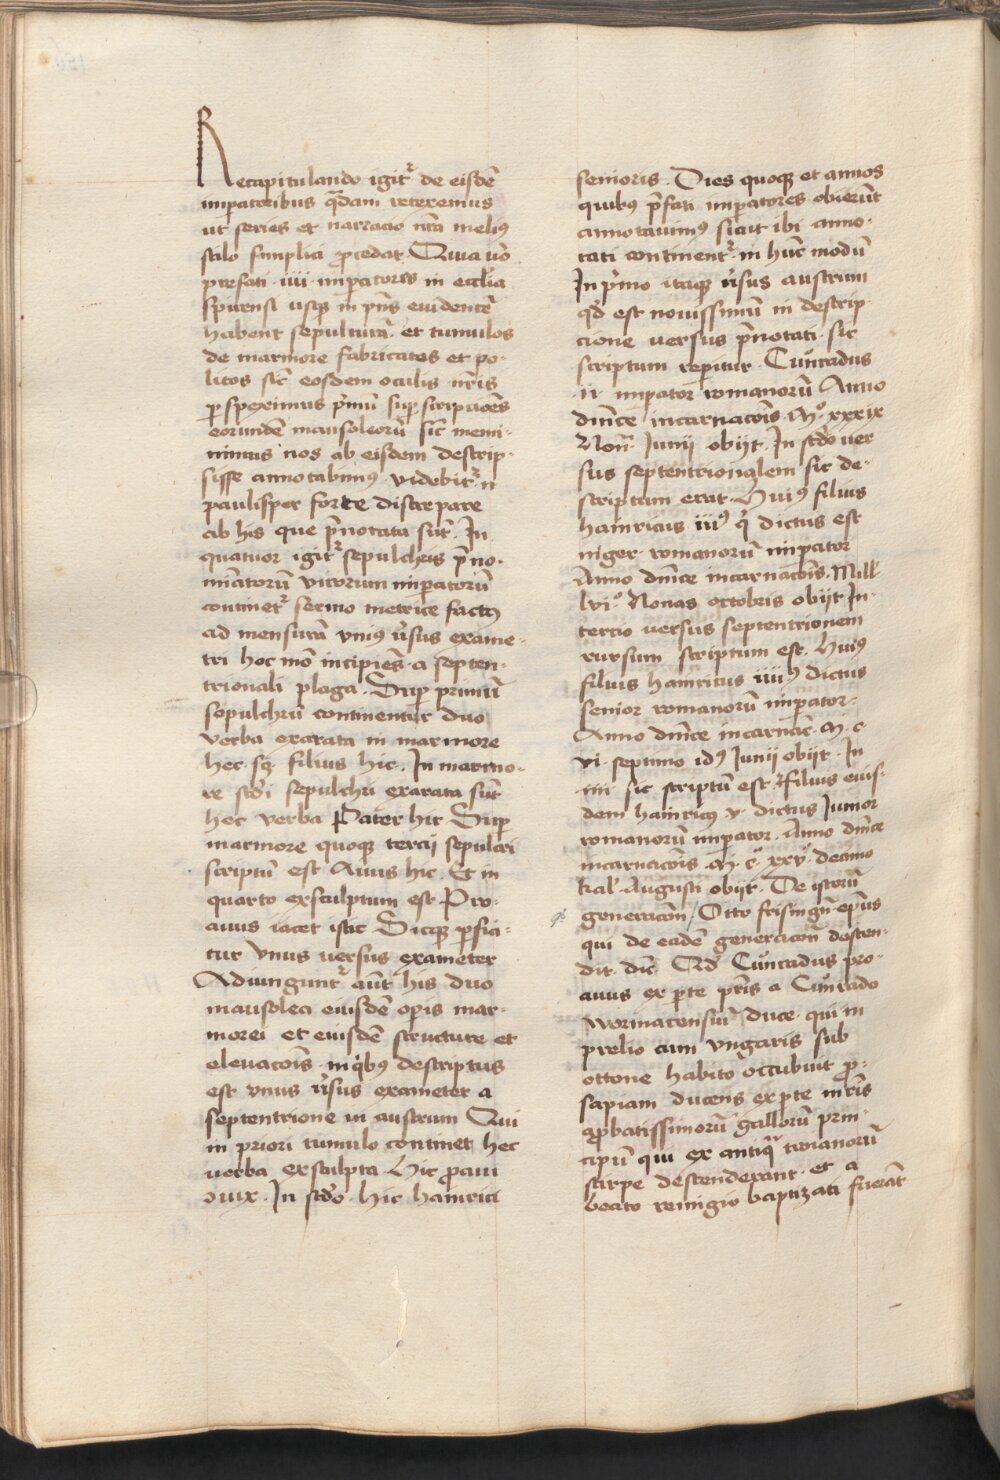 Recapitulando igit᷑ de eisdē
imꝑatoribus q̄dam retexemus
ut series et narracio nr̄a meliꝯ
stilo simplici ꝓcedat. Quia uō
prefati · iiii · imꝑatores in eccl̄ia
spirensi usqꝫ in pn̄s euidenter̄
habent sepulturā · et tumulos
de marmore fabricatos et po-
litos sic̄ eosdem oculis nr̄is
ꝑspeximus p̄mū suꝑscripcioēs
eorundē mausoleorū sic̄ memi-
nimus nos ab eisdem descrip-
sisse annotabimꝰ. Videbit᷑ n̄
paulisper forte discrepare
ab his que p̄notata sūt. In
quatuor igit᷑ sepulchris p̄no-
mi̅atorū virorum imꝑatorū
continet᷑ sermo metrice factꝰ
ad mensurā vniꝰ v̄sus exame-
tri hoc mō incipiēs · a septen-
trionali plaga. Suꝑ primū
sepulchrū continentur duo
verba exarata in marmore
hec · sꝫ · filius hic. In marmo-
re scd̄i sepulchri exarata sūt
hec verba Pater hic Suꝑ
marmore quoqꝫ tercij sepulcri
scriptū est Auus hic. Et in
quarto exsculptum est Pro-
auus iacet istic Sicqꝫ ꝑfici-
tur vnus versus exameter
Adiungunt᷑ aūt his duo
mausolea eiusdē oꝑis mar-
morei et eiusdē structure et
eleuacōis · in q̄bꝰ descriptus
est vnus v̄sus exameter a
septentrione in austrum Qui
in priori tumulo continet hec
verba exsculpta. Hic ꝓaui
ouix. In scd̄o · hic hainrici
senioris. Dies quoqꝫ et annos
quibꝰ p̄fati imꝑatores obierūt
annotauimꝰ sicut ibi anno-
tati continent᷑ · in hūc modū
In p̄mo itaqꝫ v̄sus austrum
qd̄ est nouissimū in descrip-
cione versus p̄notati · sic
scriptum reperitur. Cůnradus
· ii · imꝑator romanorū Anno
dn̄ice incarnacōis. Mº. xxxix
Non̄. Junij obijt. In scd̄o ver
sus septentrionalem sic de-
scriptum erat. Huiꝰ filius
hainricus iiiꝰ q̄ dictus est
niger · romanorū imꝑator
Anno dn̄ice incarnacōis. Mill̄
lviº. Nonas octobris obijt In
tercio versus septentrionem
rursum scriptum est. Huiꝰ
filius hainricus iiiiꝰ dictus
senior romanorū imꝑator ·
Anno dn̄ice incarnāc̄. M · c ·
vi · septimo idꝰ Junij obijt. In
· iiii · sic scriptū est · filius eius-
dem hainricꝰ v · dictus Junior
romanorū imꝑator. Anno dn̄ice
incarnacōis. M · cº · xxvº. decimo
kal̄. Augusti obijt. De istorū
generacōn̄ / Otto frisinḡn̄ · ep̄us
qui de eadē generacōn̄ desten-
dit · dic̄. Qd̄ Cůnradus pro-
auus ex ꝑte pr̄is a Cůnrado
wormacensiū duce · qui in
prelio cum vngaris sub
ottone habito occubuit ꝓ-
sapiam ducens ex ꝑte mr̄is
ꝓbatissimorū gallorū prin-
cipū qui ex antiq̄ troianorū
stirpe descenderant · et a
beato remigio baptizati fuerāt